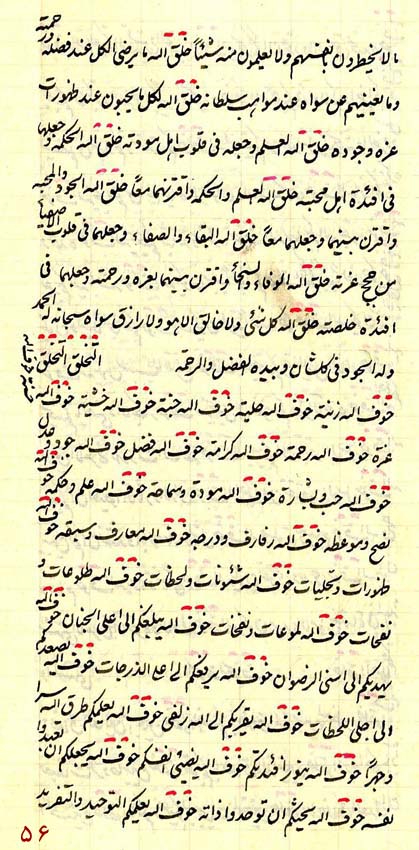 مالا یخطرون بانفسهم ولا یعلمون منه شیئاً خلق الله ما یرضی الکل عند فضله ورحمته
وما یغنیهم عن سواه عند مواهب سلطانه خلق الله لکل ما یحبون عند ظهورات
عزه وجوده خلق الله العلم وجعله فی قلوب اهل مودته خلق الله الحکمة وجعلها
فی افئدة اهل محبته خلق الله العلم والحکمة واقرنهما معاً خلق الله الجود والمحبه
واقرن بینهما وجعلهما معاً خلق الله البقاء والصفاء وجعلهما فی قلوب الاصفیاء
من حجج عزته خلق الله الوفاء والسخاء واقرن بینهما بعزه ورحمته وجعلهما فی
افئدة خلصته خلق الله کل شئ ولا خالق الا هو ولا رازق سواه سبحانه له الحمد
وله الجود فی کل شان وبیده الفضل والرحمه التخلق التخلق
خوف الله زینة خوف الله حلیة خوف الله جنة خوف الله خشیة خوف الله
عزة خوف الله رحمة خوف الله کرامة خوف الله فضل خوف الله جود وعدل
خوف الله حب وبشارة خوف الله مودة وسماحة خوف الله علم وحکمة خوف الله
نصح وموعظه خوف الله رفارف ودرجه خوف الله معارف وسبقه خوف الله
ظهورات وتجلیات خوف الله شئونات ولحظات خوف الله طلوعات و
نفحات خوف الله لموعات ونفحات خوف الله یبلغکم الی اعلی الجنان خوف الله
یهدیکم الی اسنی الرضوان خوف الله یرفعکم الی اعلا الدرجات خوف الله یصعدکم
الی اجلی اللحظات خوف الله یقربکم الی الله زلفی خوف الله یعلمکم طرق الله سرا
وجهراً خوف الله ینور افئدتکم خوف الله یضئ انفسکم خوف الله یجعلکم ان تعبدوا
نفسه خوف الله یحبیکم ان توحدوا ذاته خوف الله یعلمکم التوحید والتفرید
۵۶